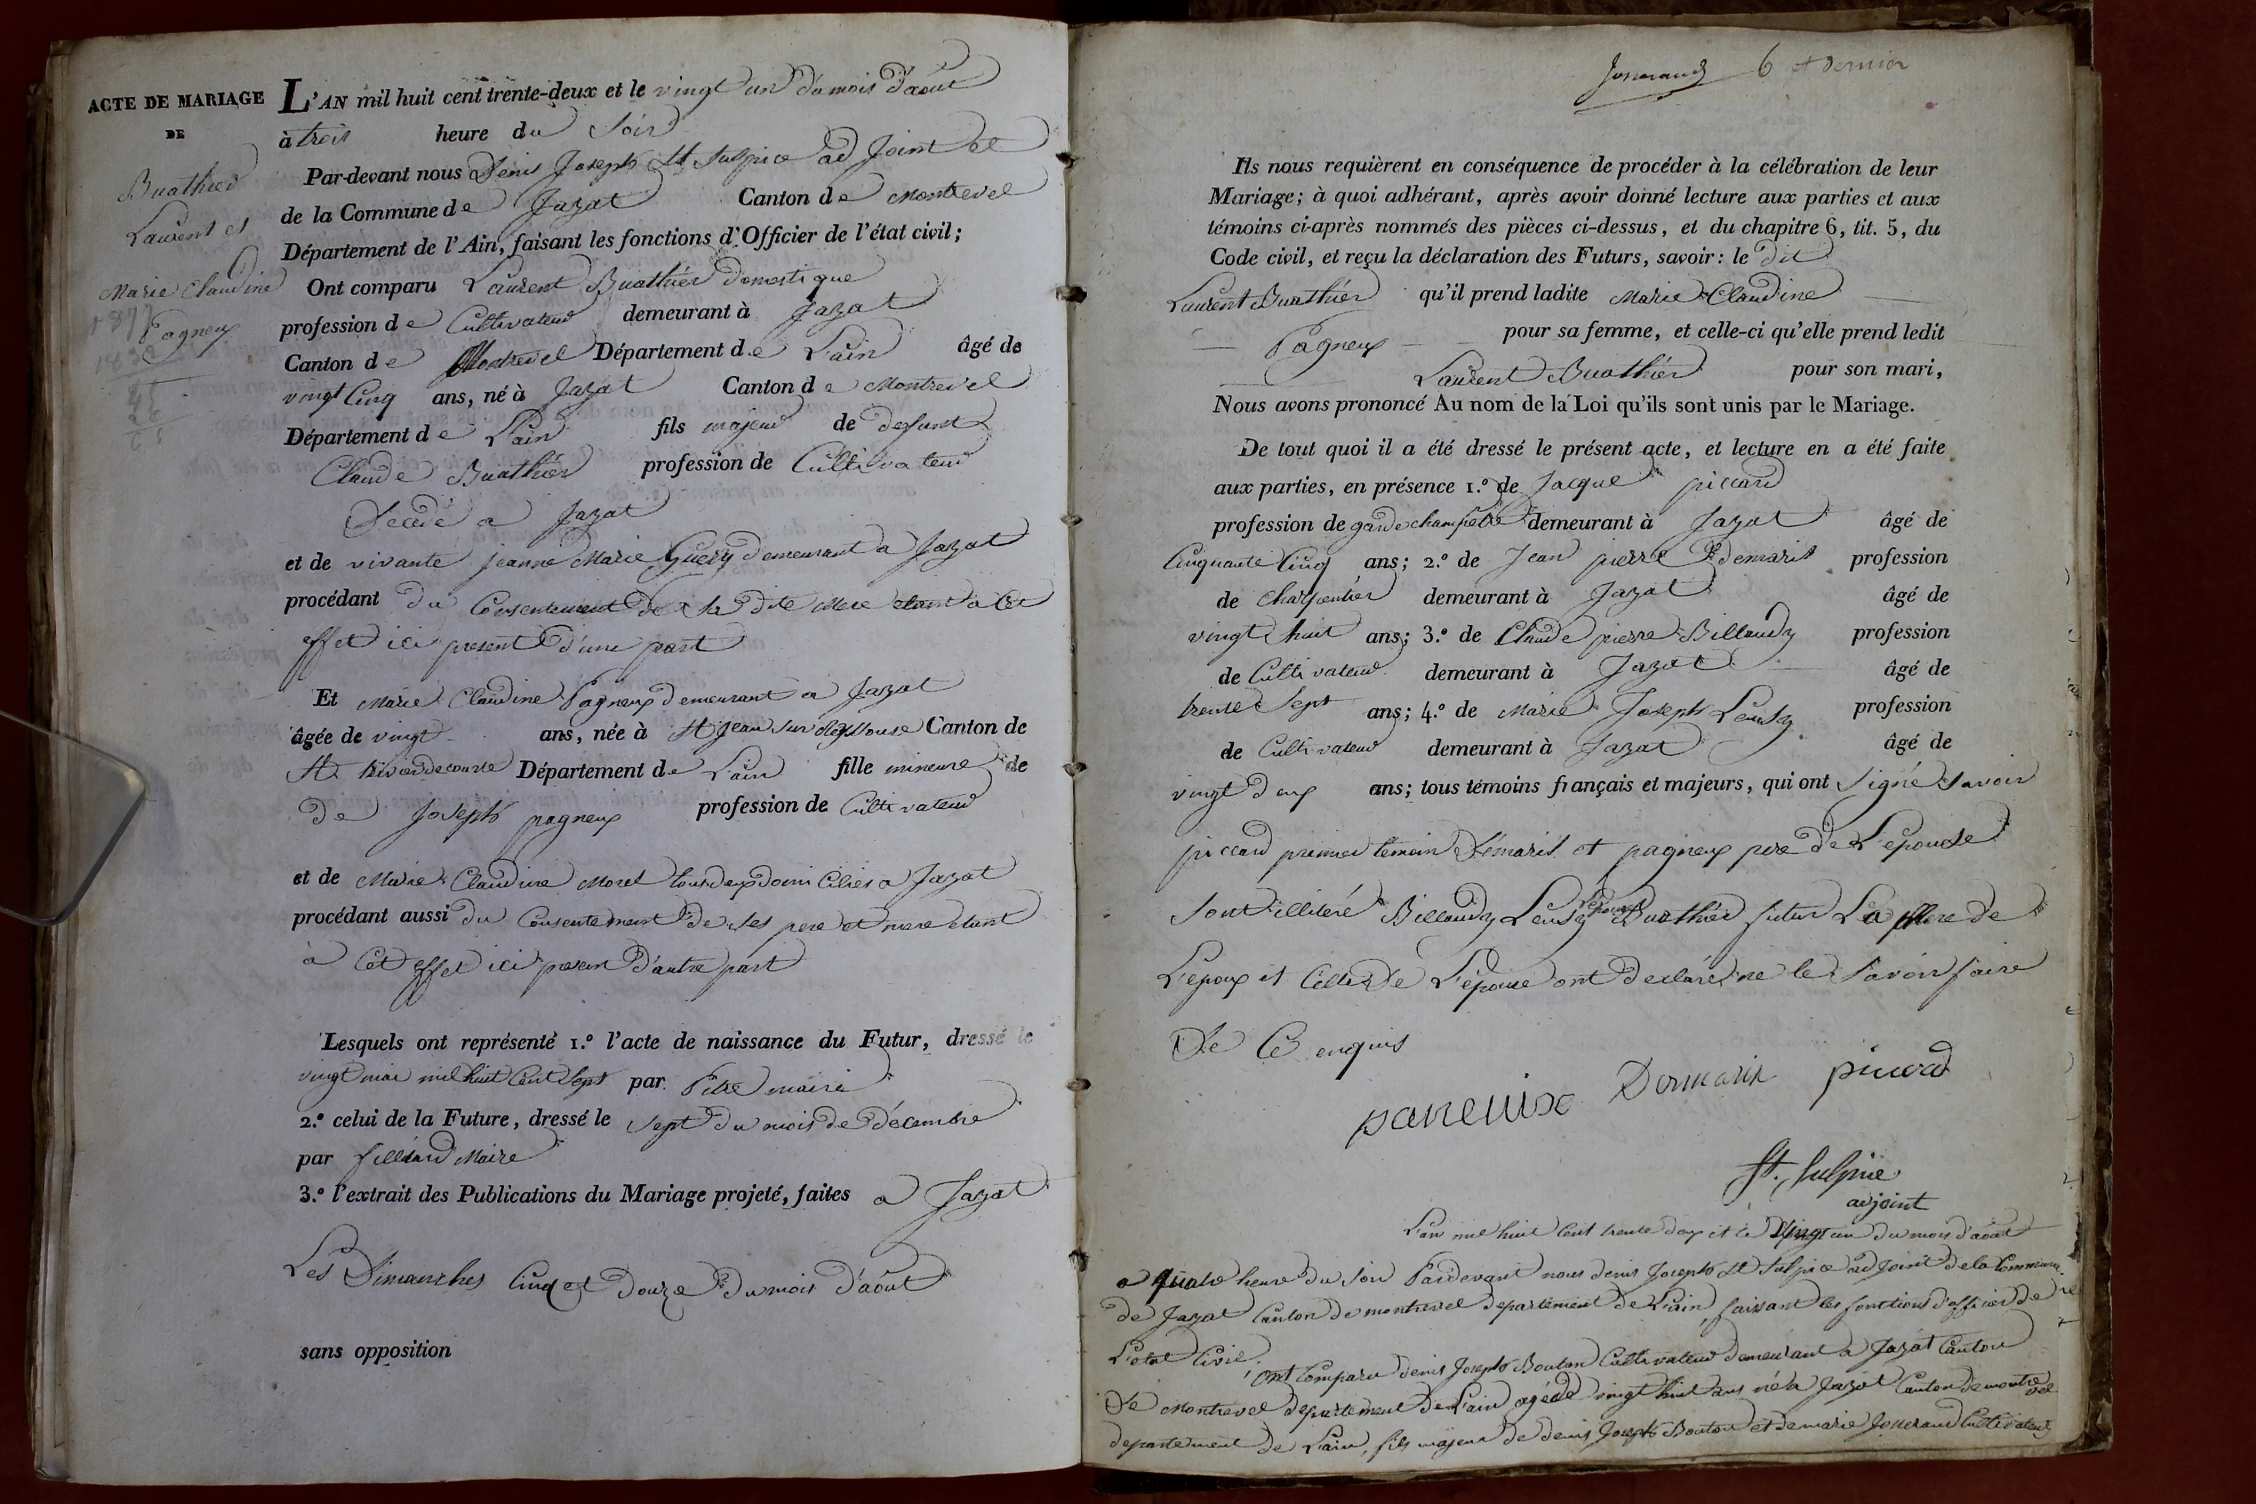 ACTE DE MARIAGE
DE
Buathier
Laurent et
Marie Claudine
Pagneux
L'AN mil huit cent trente-deux et le vingt un du mois d'août
à trois heure du Soir
Par-devant nous Denis Joseph St Sulpice adjoint et
de la Commune de Jazat Canton de Montrevel
Département de l'Ain, faisant les fonctions d'Officier de l'état civil;
Ont comparu Laurent Buathier domestique
profession de Cultivateur demeurant à Jazat
Canton de Montrevel Département de L'ain âgé de
vingt Cinq ans, né à Jazat Canton de Montrevel
Département de L'ain fils majeur de defunt
Claude Buathier profession de Cultivateur
Décédé a Jazat
et de vivante jeanne Marie Guery demeurant a Jazat
procédant du Consentement de sa dite Mere etant a Cet
effet ici present d'une part
Et Marie Claudine Pagneux demeurant a Jazat
âgée de vingt ans, née à St Jean sur Reyssouse Canton de
St trivier de courte Département de L'ain fille mineure de
de Joseph pagneux profession de Cultivateur
et de Marie Claudine Morel tous deux domiciliés a Jazat
procédant aussi du Consentement de ses pere et mere etant
à Cet effet ici present d'autre part
Lesquels ont représenté 1.º l'acte de naissance du Futur, dressé le
vingt mai mil huit Cent Sept par Pitre maire
2.º celui de la Future, dressé le sept du mois de décembre
par filliard Maire
3.º l'extrait des Publications du Mariage projeté, faites a Jazat
Les Dimanches Cinq et Douze du mois d'août
sans opposition
Josserand 6 et dernier
Ils nous requièrent en conséquence de procéder à la célébration de leur
Mariage; à quoi adhérant, après avoir donné lecture aux parties et aux
témoins ci-après nommés des pièces ci-dessus, et du chapitre 6, tit. 5, du
Code civil, et reçu la déclaration des Futurs, savoir: le dit
Laurent Buathier qu'il prend ladite Marie Claudine
Pagneux pour sa femme, et celle-ci qu'elle prend ledit
Laurent Buathier pour son mari,
Nous avons prononcé Au nom de la Loi qu'ils sont unis par le Mariage.
De tout quoi il a été dressé le présent acte, et lecture en a été faite
aux parties, en présence 1.º de Jacque piccard
profession de garde champêtre demeurant à Jazat âgé de
Cinquante Cinq ans; 2.º de Jean pierre demaris profession
de Charpentier demeurant à Jazat âgé de
vingt huit ans; 3.º de Claude pierre Billaudy profession
de Cultivateur demeurant à Jazat âgé de
trente Sept ans; 4.º de Marie Joseph profession
de Cultivateur demeurant à Jazat âgé de
vingt deux ans; tous témoins français et majeurs, qui ont Signé Savoir
piccard premier temoin Démaris et pagneux pere de L'épouse
Sont illiteré Billaudy L'épouse Buathier futur La Mere de
L'époux et Celle de L'épouse ont declaré ne le Savoir faire
De Ce enquis
paneuix Demaris picard
St. Sulpice
adjoint
L'an mil huit Cent trente deux et le Vingt un du mois d'août
a quatre heure du Soir Pardevant nous denis Joseph St Sulpice adjoint de la Commune
de Jazat Canton de montrevel departement de L'ain, faisant les fonctions d'officier de
L'etat Civil.
Ont Comparu denis Joseph Bouton Cultivateur demeurant a Jazat Canton
De Montrevel departement de L'ain agé de vingt huit ans né a Jazat Canton de montrevel
departement de L'ain, fils majeur de denis Joseph Bouton et de marie Josserand Cultivateurs